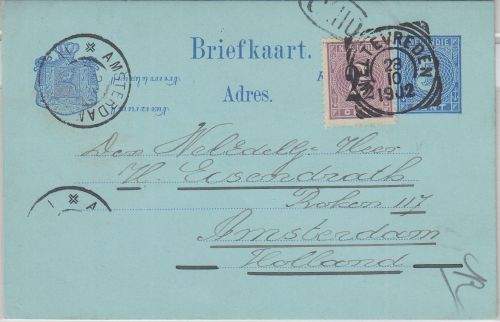 AMSTERDAM
Briefkaart.
WELTEVREDEN
28
10
1902
Adres.
Den WelEdelg. Heer
H. Eisendrath
Rokin 117
Amsterdam
Holland